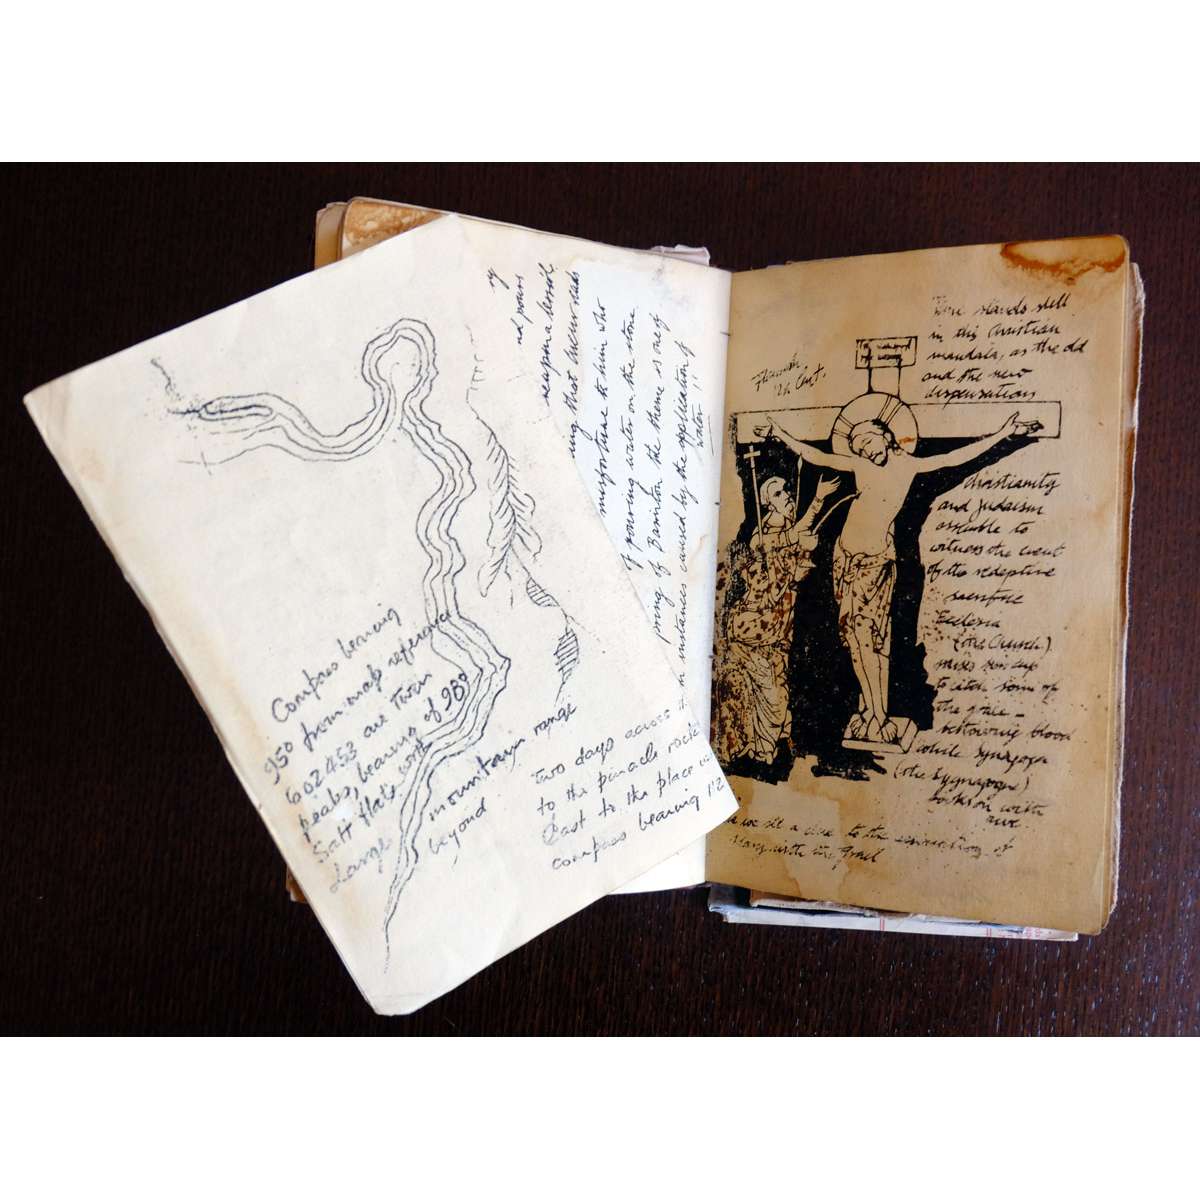 Compass bearing
95° from map reference
602453 are Twin
peaks, bearing of 98°
Salt flats with
large
mountain range
beyond
Two days across
to the pinacle rock
East to the place
compass bearing 112
nd pours
reup on a vessel
misfortune to him who
of pouring water on the stone
of Baranton. the theme is
instances caused by the application of
water!!
Flemish
12th Cent.
There stands still
in this Christian
mandala, as the old
and the new
dispensations
Christianity
and Judaism
assemble to
witness the event
of the redeptive
sacrifice
Eclesia
(the Church)
raises her cup
to catch some of
the grace -
bestowing blood
while Synagoga
(the Sygnagogue)
looks on with
awe
we see a clue to the association of
Mary with the Grael